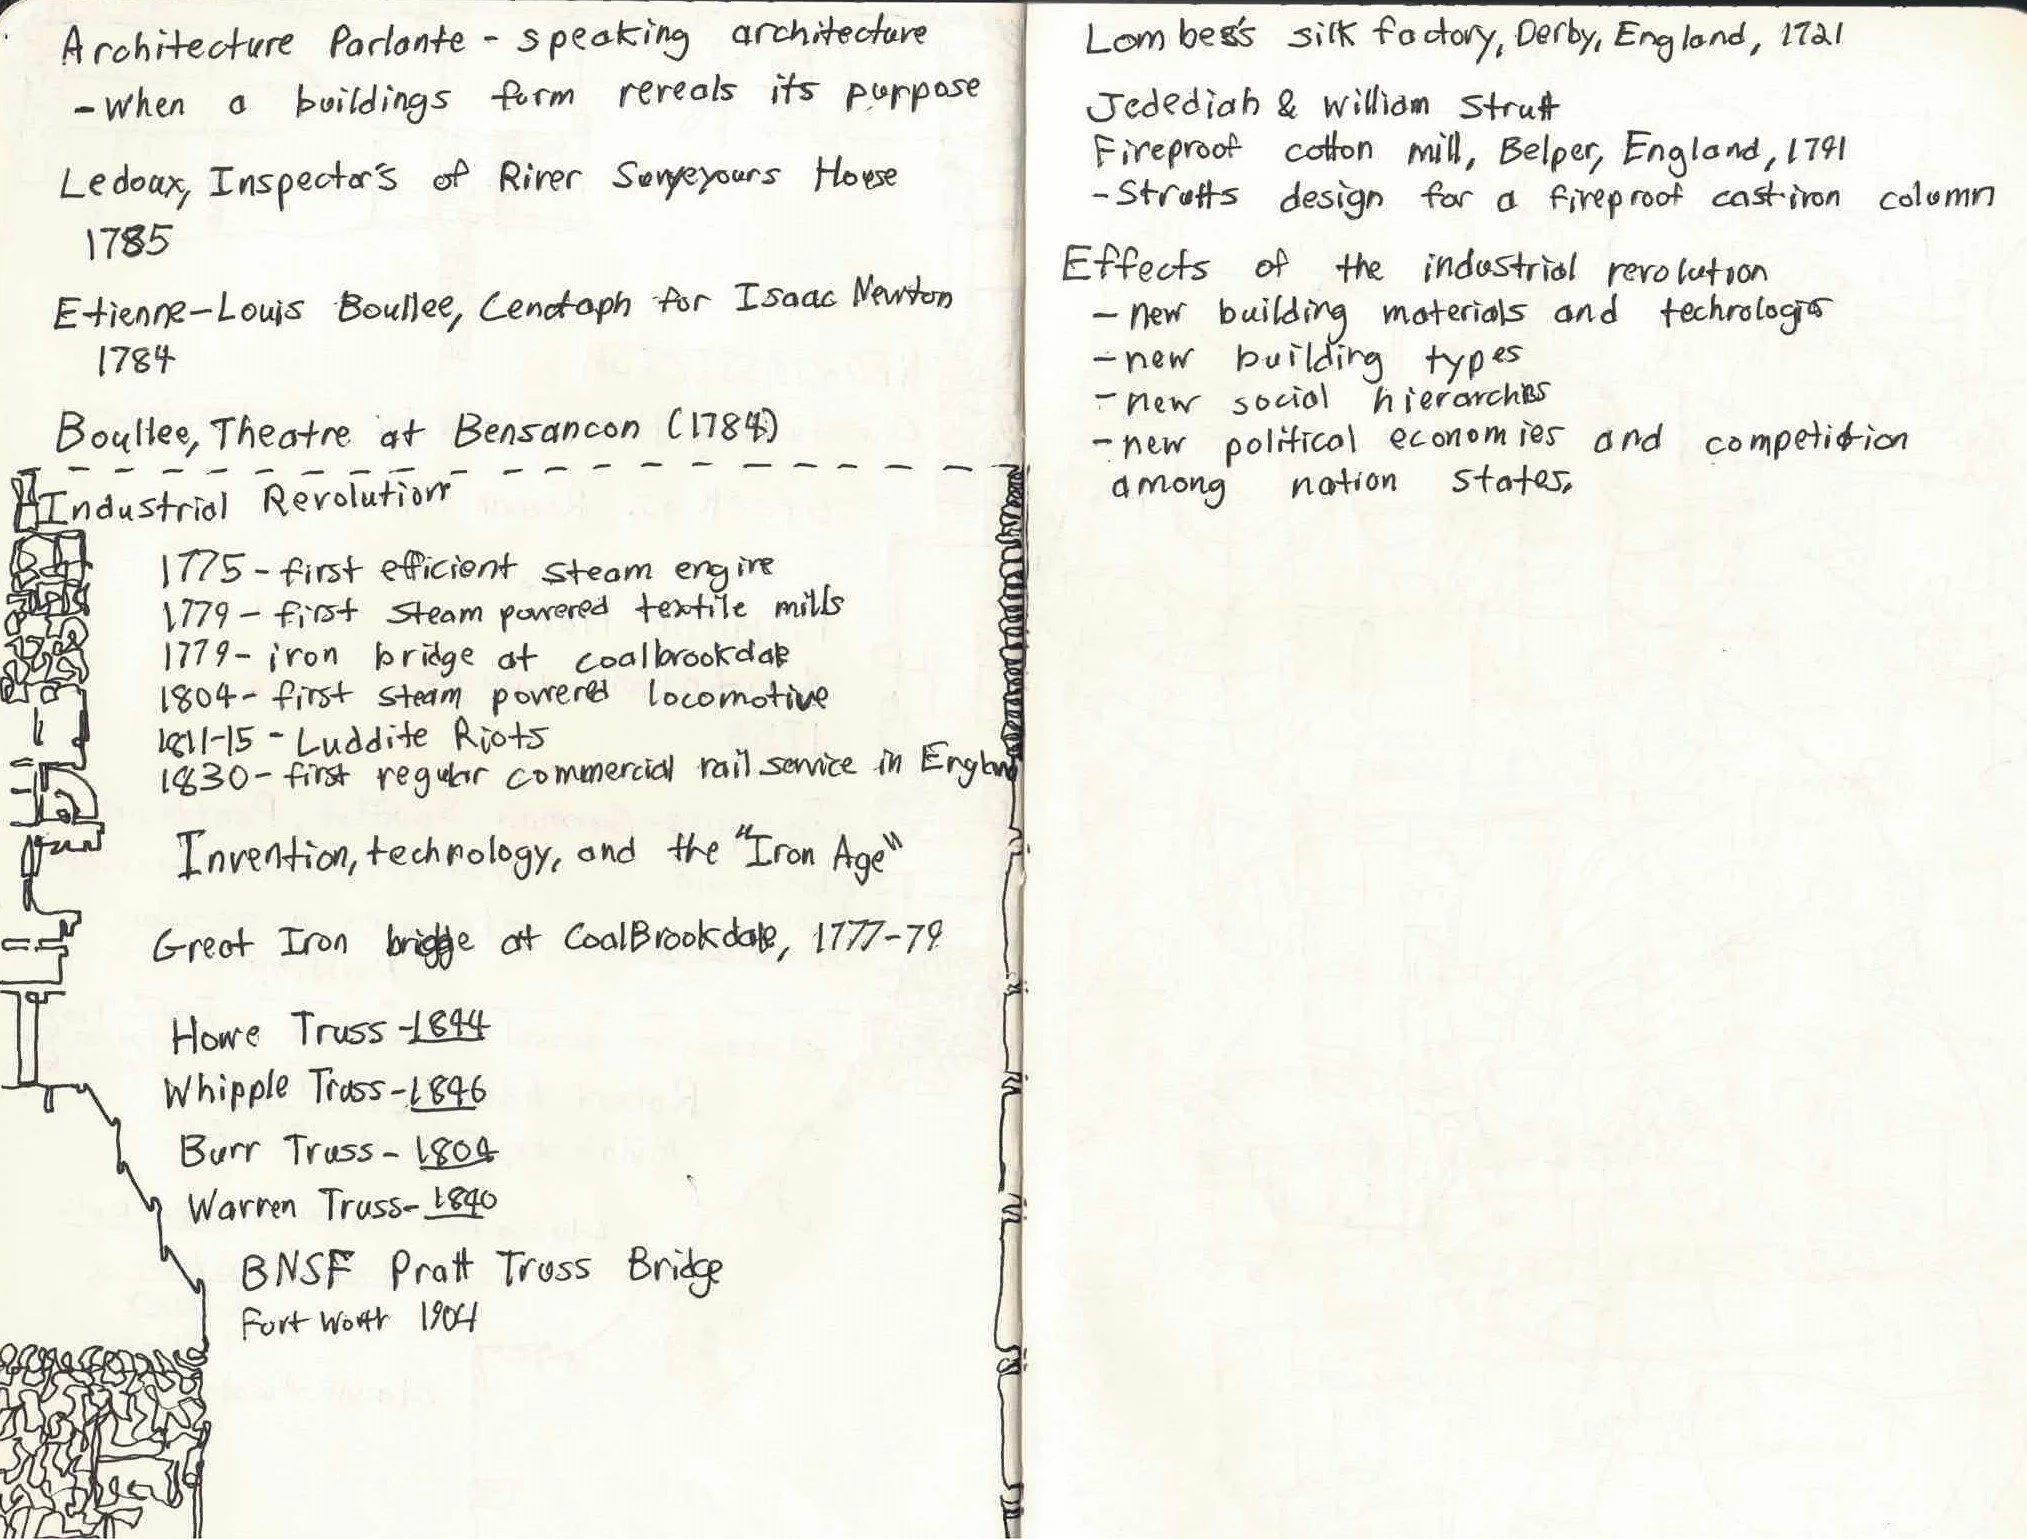 Architecture Parlante - speaking architecture
- When a buildings form reveals its purpose
Ledoux, Inspector's of River Surveyours House
1785
Etienne-Louis Boullee, Cenotaph for Isaac Newton
1784
Boullee, Theatre at Bensancon (1784)
Industrial Revolution
1775 - first efficient steam engine
1779 - first steam powered textile mills
1779 - iron bridge at coalbrookdale
1804 - first steam powered locomotive
1811-15 - Luddite Riots
1830 - first regular commercial rail service in England
Invention, technology, and the "Iron Age"
Great Iron bridge at CoalBrookdale, 1777-79
Howe Truss - 1844
Whipple Truss - 1846
Burr Truss - 1804
Warren Truss - 1840
BNSF Pratt Truss Bridge
Fort Worth 1904
Lombes's silk factory, Derby, England, 1721
Jedediah & William Strutt
Fireproof cotton mill, Belper, England, 1791
- Strutts design for a fireproof cast-iron column
Effects of the industrial revolution
- new building materials and technologies
- new building types
- new social hierarchies
- new political economies and competition
among nation states.